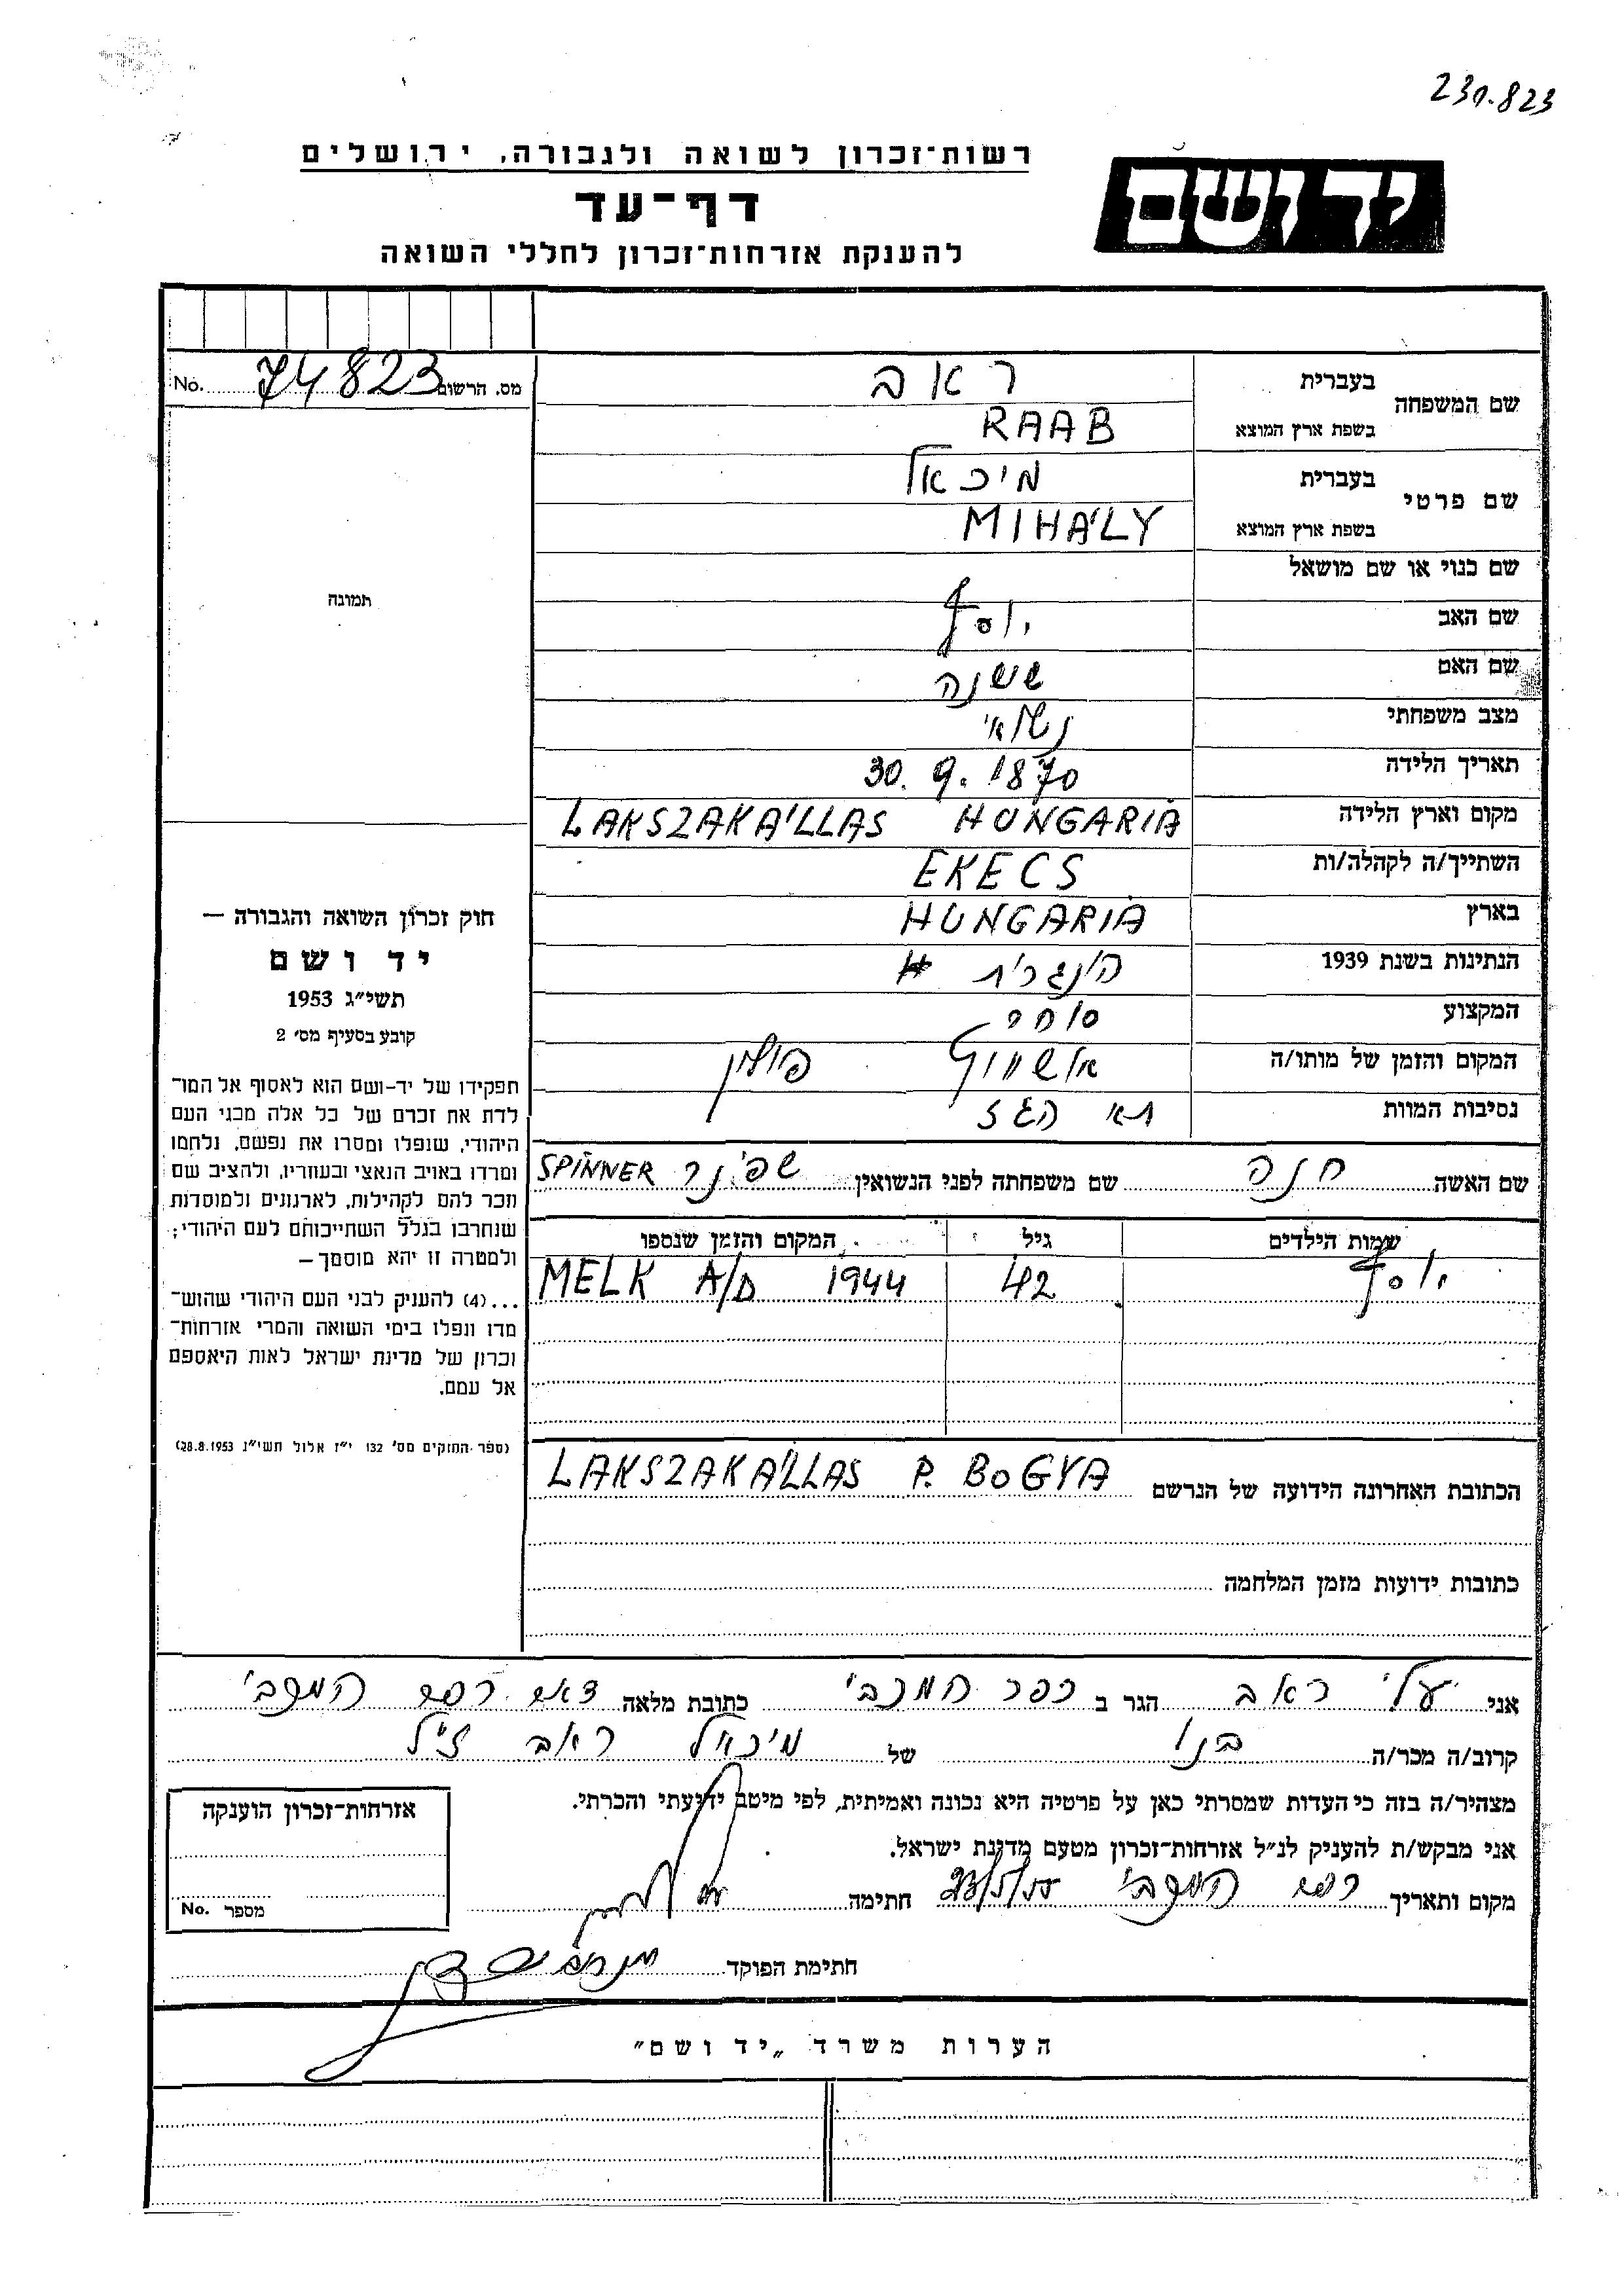 230.823
רשות־זכרון לשואה ולגבורה, ירושלים
יד ושם
דף־עד
להענקת אזרחות־זכרון לחללי השואה
מס. הרשום 74823 No.
שם המשפחה
בעברית ראב
בשפת ארץ המוצא RAAB
שם פרטי
בעברית מיכאל
בשפת ארץ המוצא MIHÁLY
שם כנוי או שם מושאל
שם האב יוסף
שם האם ששנה
מצב משפחתי נשאוי
תאריך הלידה 30. 9. 1870
מקום וארץ הלידה LAKSZAKÁLLAS HUNGARIA
השתייך/ה לקהלה/ות EKECS
בארץ HUNGARIA
הנתינות בשנת 1939 הונגרית
המקצוע סוחר
המקום והזמן של מותו/ה אושויץ פולין
נסיבות המוות תא הגז
שם האשה חנה שם משפחתה לפני הנשואין שפינר SPINNER
שמות הילדים גיל המקום והזמן שנספו
יוסף 42 MELK A/D 1944
הכתובת האחרונה הידועה של הנרשם LAKSZAKÁLLAS P. BOGYA
כתובות ידועות מזמן המלחמה
תמונה
חוק זכרון השואה והגבורה —
יד ושם
תשי״ג 1953
קובע בסעיף מס׳ 2
תפקידו של יד-ושם הוא לאסוף אל המו־
לדת את זכרם של כל אלה מבני העם
היהודי, שנפלו ומסרו את נפשם, נלחמו
ומרדו באויב הנאצי ובעוזריו, ולהציב שם
וזכר להם לקהילות, לארגונים ולמוסדות
שנחרבו בגלל השתייכותם לעם היהודי;
ולמטרה זו יהא מוסמך —
...(4) להעניק לבני העם היהודי שהוש־
מדו ונפלו בימי השואה והמרי אזרחות־
זכרון של מדינת ישראל לאות היאספם
אל עמם.
(ספר החוקים מס׳ 132 י״ז אלול תשי״ג 28.8.1953)
אני עלי ראב הגר ב כפר המכבי כתובת מלאה דאר כפר המכבי
קרוב/ה מכר/ה בנו של מיכאל ראב ז״ל
מצהיר/ה בזה כי העדות שמסרתי כאן על פרטיה היא נכונה ואמיתית, לפי מיטב ידיעתי והכרתי.
אני מבקש/ת להעניק לנ״ל אזרחות־זכרון מטעם מדינת ישראל.
מקום ותאריך כפר המכבי חתימה
חתימת הפוקד
אזרחות־זכרון הוענקה
מספר No.
הערות משרד „יד ושם״